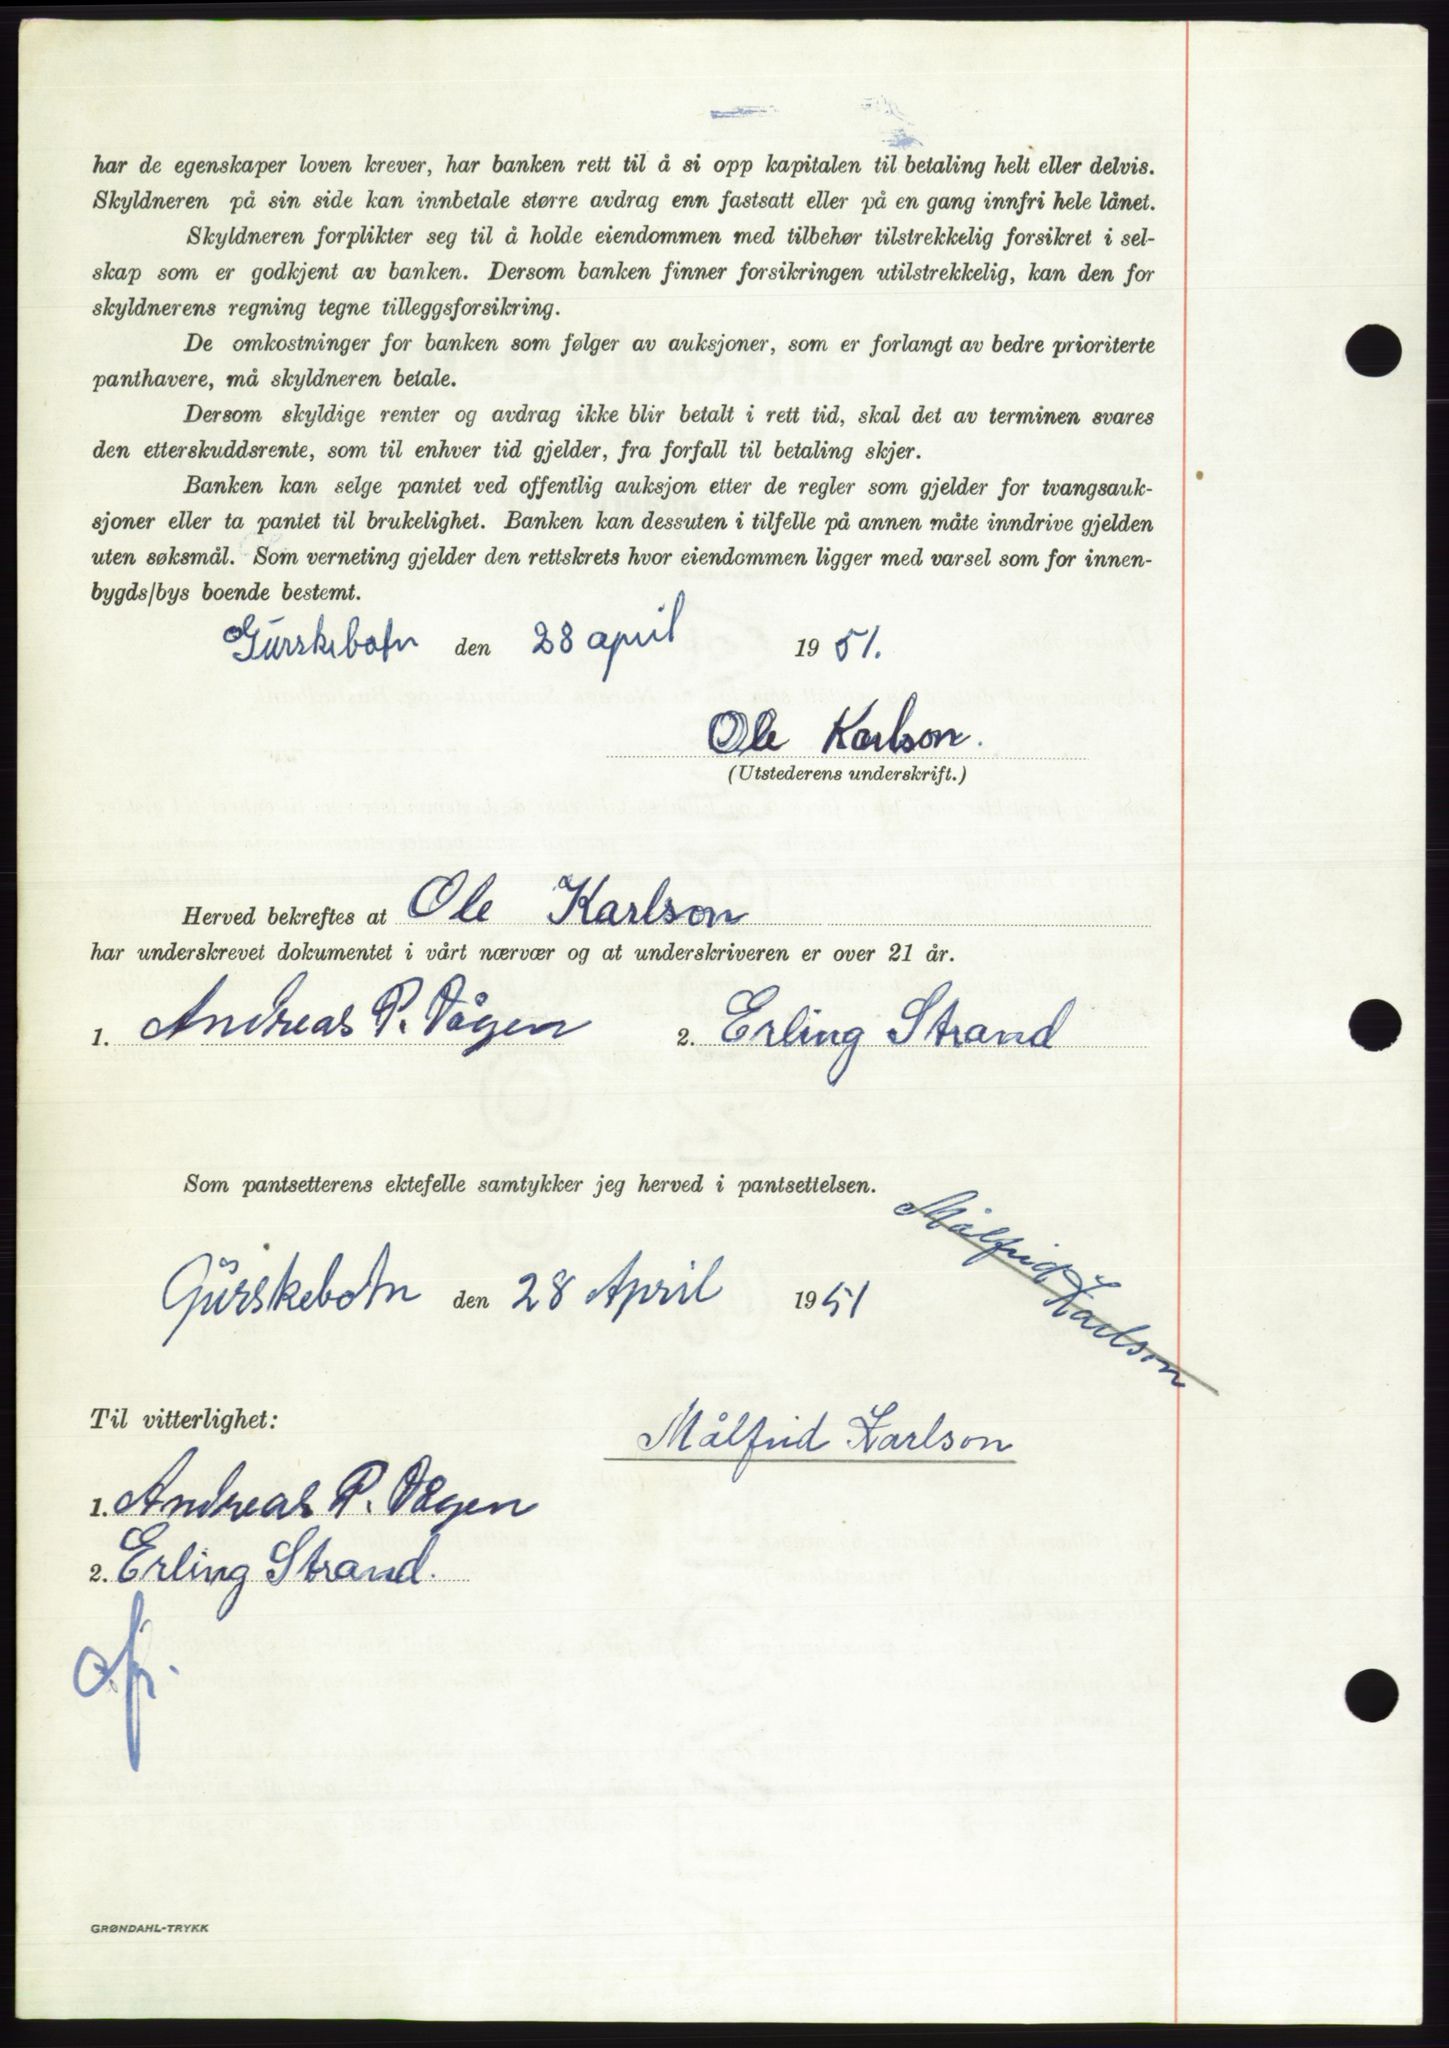 har de egenskaper loven krever, har banken rett til å si opp kapitalen til betaling helt eller delvis.
Skyldneren på sin side kan innbetale større avdrag enn fastsatt eller på en gang innfri hele lånet.
Skyldneren forplikter seg til å holde eiendommen med tilbehør tilstrekkelig forsikret i sel-
skap som er godkjent av banken. Dersom banken finner forsikringen utilstrekkelig, kan den for
skyldnerens regning tegne tilleggsforsikring.
De omkostninger for banken som følger av auksjoner, som er forlangt av bedre prioriterte
panthavere, må skyldneren betale.
Dersom skyldige renter og avdrag ikke blir betalt i rett tid, skal det av terminen svares
den etterskuddsrente, som til enhver tid gjelder, fra forfall til betaling skjer.
Banken kan selge pantet ved offentlig auksjon etter de regler som gjelder for tvangsauk-
sjoner eller ta pantet til brukelighet. Banken kan dessuten i tilfelle på annen måte inndrive gjelden
uten søksmål. Som verneting gjelder den rettskrets hvor eiendommen ligger med varsel som for innen-
bygds/bys boende bestemt.
Gurskebotn den 28 april 1951.
Ole Karlson.
(Utstederens underskrift.)
Herved bekreftes at Ole Karlson
har underskrevet dokumentet i vårt nærvær og at underskriveren er over 21 år.
1. Andreas P. Vågen 2. Erling Strand
Som pantsetterens ektefelle samtykker jeg herved i pantsettelsen.
Målfrid Karlson
Gurskebotn den 28 April 1951
Til vitterlighet:
Målfrid Karlson
1. Andreas P. Vågen
2. Erling Strand.
GRØNDAHL-TRYKK